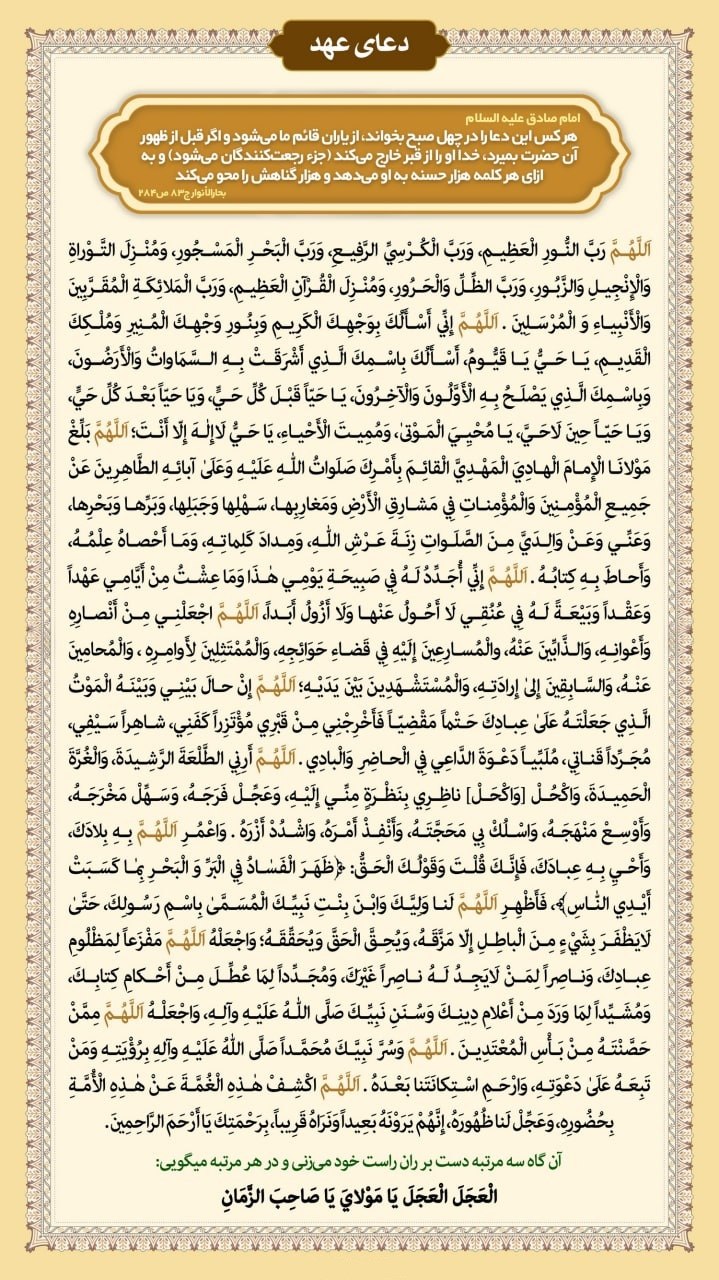 دعای عهد
امام صادق علیه السلام
هر کس این دعا را در چهل صبح بخواند، از یاران قائم ما می‌شود و اگر قبل از ظهور
آن حضرت بمیرد، خدا او را از قبر خارج می‌کند (جزء رجعت‌کنندگان می‌شود) و به
ازای هر کلمه هزار حسنه به او می‌دهد و هزار گناهش را محو می‌کند
بحارالأنوار ج۸۳ ص۲۸۴
اَللّٰهُمَّ رَبَّ النُّورِ الْعَظِيمِ، وَرَبَّ الْكُرْسِيِّ الرَّفِيعِ، وَرَبَّ الْبَحْرِ الْمَسْجُورِ، وَمُنْزِلَ التَّوْراةِ
وَالْإِنْجِيلِ وَالزَّبُورِ، وَرَبَّ الظِّلِّ وَالْحَرُورِ، وَمُنْزِلَ الْقُرْآنِ الْعَظِيمِ، وَرَبَّ الْمَلائِكَةِ الْمُقَرَّبِينَ
وَالْأَنْبِياءِ وَ الْمُرْسَلِينَ . اَللّٰهُمَّ إِنِّي أَسْأَلُكَ بِوَجْهِكَ الْكَرِيمِ وَبِنُورِ وَجْهِكَ الْمُنِيرِ وَمُلْكِكَ
الْقَدِيمِ، يَا حَيُّ يَا قَيُّومُ، أَسْأَلُكَ بِاسْمِكَ الَّذِي أَشْرَقَتْ بِهِ السَّمَاواتُ وَالْأَرَضُونَ،
وَبِاسْمِكَ الَّذِي يَصْلَحُ بِهِ الْأَوَّلُونَ وَالْآخِرُونَ، يَا حَيّاً قَبْلَ كُلِّ حَيٍّ، وَيَا حَيّاً بَعْدَ كُلِّ حَيٍّ،
وَيَا حَيّاً حِينَ لَاحَيَّ، يَا مُحْيِيَ الْمَوْتىٰ، وَمُمِيتَ الْأَحْياءِ، يَا حَيُّ لَاإِلٰهَ إِلّا أَنْتَ؛ اَللّٰهُمَّ بَلِّغْ
مَوْلانَا الْإِمامَ الْهادِيَ الْمَهْدِيَّ الْقائِمَ بِأَمْرِكَ صَلَواتُ اللّٰهِ عَلَيْهِ وَعَلَىٰ آبائِهِ الطَّاهِرِينَ عَنْ
جَمِيعِ الْمُؤْمِنِينَ وَالْمُؤْمِناتِ فِي مَشارِقِ الْأَرْضِ وَمَغارِبِها، سَهْلِها وَجَبَلِها، وَبَرِّها وَبَحْرِها،
وَعَنِّي وَعَنْ وَالِدَيَّ مِنَ الصَّلَواتِ زِنَةَ عَرْشِ اللّٰهِ، وَمِدادَ كَلِماتِهِ، وَمَا أَحْصاهُ عِلْمُهُ،
وَأَحاطَ بِهِ كِتابُهُ . اَللّٰهُمَّ إِنِّي أُجَدِّدُ لَهُ فِي صَبِيحَةِ يَوْمِي هٰذَا وَمَا عِشْتُ مِنْ أَيَّامِي عَهْداً
وَعَقْداً وَبَيْعَةً لَهُ فِي عُنُقِي لَا أَحُولُ عَنْها وَلَا أَزُولُ أَبَداً، اَللّٰهُمَّ اجْعَلْنِي مِنْ أَنْصارِهِ
وَأَعْوانِهِ، وَالذَّابِّينَ عَنْهُ، والْمُسارِعِينَ إِلَيْهِ فِي قَضاءِ حَوَائِجِهِ، وَالْمُمْتَثِلِينَ لِأَوامِرِهِ ، وَالْمُحامِينَ
عَنْهُ، وَالسَّابِقِينَ إِلىٰ إِرادَتِهِ، وَالْمُسْتَشْهَدِينَ بَيْنَ يَدَيْهِ؛ اَللّٰهُمَّ إِنْ حالَ بَيْنِي وَبَيْنَهُ الْمَوْتُ
الَّذِي جَعَلْتَهُ عَلَىٰ عِبادِكَ حَتْماً مَقْضِيّاً فَأَخْرِجْنِي مِنْ قَبْرِي مُؤْتَزِراً كَفَنِي، شاهِراً سَيْفِي،
مُجَرِّداً قَناتِي، مُلَبِّياً دَعْوَةَ الدَّاعِي فِي الْحاضِرِ وَالْبادِي . اَللّٰهُمَّ أَرِنِي الطَّلْعَةَ الرَّشِيدَةَ، وَالْغُرَّةَ
الْحَمِيدَةَ، وَاكْحُلْ [وَاكْحَلْ] ناظِرِي بِنَظْرَةٍ مِنِّي إِلَيْهِ، وَعَجِّلْ فَرَجَهُ، وَسَهِّلْ مَخْرَجَهُ،
وَأَوْسِعْ مَنْهَجَهُ، وَاسْلُكْ بِي مَحَجَّتَهُ، وَأَنْفِذْ أَمْرَهُ، وَاشْدُدْ أَزْرَهُ . وَاعْمُرِ اَللّٰهُمَّ بِهِ بِلادَكَ،
وَأَحْيِ بِهِ عِبادَكَ، فَإِنَّكَ قُلْتَ وَقَوْلُكَ الْحَقُّ: ﴿ظَهَرَ الْفَسَادُ فِي الْبَرِّ وَ الْبَحْرِ بِمَا كَسَبَتْ
أَيْدِي النَّاسِ﴾، فَأَظْهِرِ اَللّٰهُمَّ لَنا وَلِيَّكَ وَابْنَ بِنْتِ نَبِيِّكَ الْمُسَمَّىٰ بِاسْمِ رَسُولِكَ، حَتَّىٰ
لَايَظْفَرَ بِشَيْءٍ مِنَ الْباطِلِ إِلّا مَزَّقَهُ، وَيُحِقَّ الْحَقَّ وَيُحَقِّقَهُ؛ وَاجْعَلْهُ اَللّٰهُمَّ مَفْزَعاً لِمَظْلُومِ
عِبادِكَ، وَناصِراً لِمَنْ لَايَجِدُ لَهُ ناصِراً غَيْرَكَ، وَمُجَدِّداً لِمَا عُطِّلَ مِنْ أَحْكامِ كِتابِكَ،
وَمُشَيِّداً لِمَا وَرَدَ مِنْ أَعْلامِ دِينِكَ وَسُنَنِ نَبِيِّكَ صَلَّى اللّٰهُ عَلَيْهِ وَآلِهِ، وَاجْعَلْهُ اَللّٰهُمَّ مِمَّنْ
حَصَّنْتَهُ مِنْ بَأْسِ الْمُعْتَدِينَ . اَللّٰهُمَّ وَسُرَّ نَبِيَّكَ مُحَمَّداً صَلَّى اللّٰهُ عَلَيْهِ وَآلِهِ بِرُؤْيَتِهِ وَمَنْ
تَبِعَهُ عَلَىٰ دَعْوَتِهِ، وَارْحَمِ اسْتِكانَتَنا بَعْدَهُ . اَللّٰهُمَّ اكْشِفْ هٰذِهِ الْغُمَّةَ عَنْ هٰذِهِ الْأُمَّةِ
بِحُضُورِهِ، وَعَجِّلْ لَنا ظُهُورَهُ، إِنَّهُمْ يَرَوْنَهُ بَعِيداً وَنَرَاهُ قَرِيباً، بِرَحْمَتِكَ يَا أَرْحَمَ الرَّاحِمِينَ.
آن گاه سه مرتبه دست بر ران راست خود می‌زنی و در هر مرتبه میگویی:
الْعَجَلَ الْعَجَلَ يَا مَوْلايَ يَا صَاحِبَ الزَّمَانِ